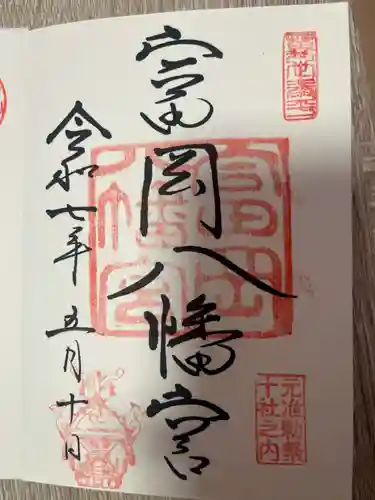 富岡八幡宮
令和七年五月十日
富岡八幡宮
元准勅祭
十社之内